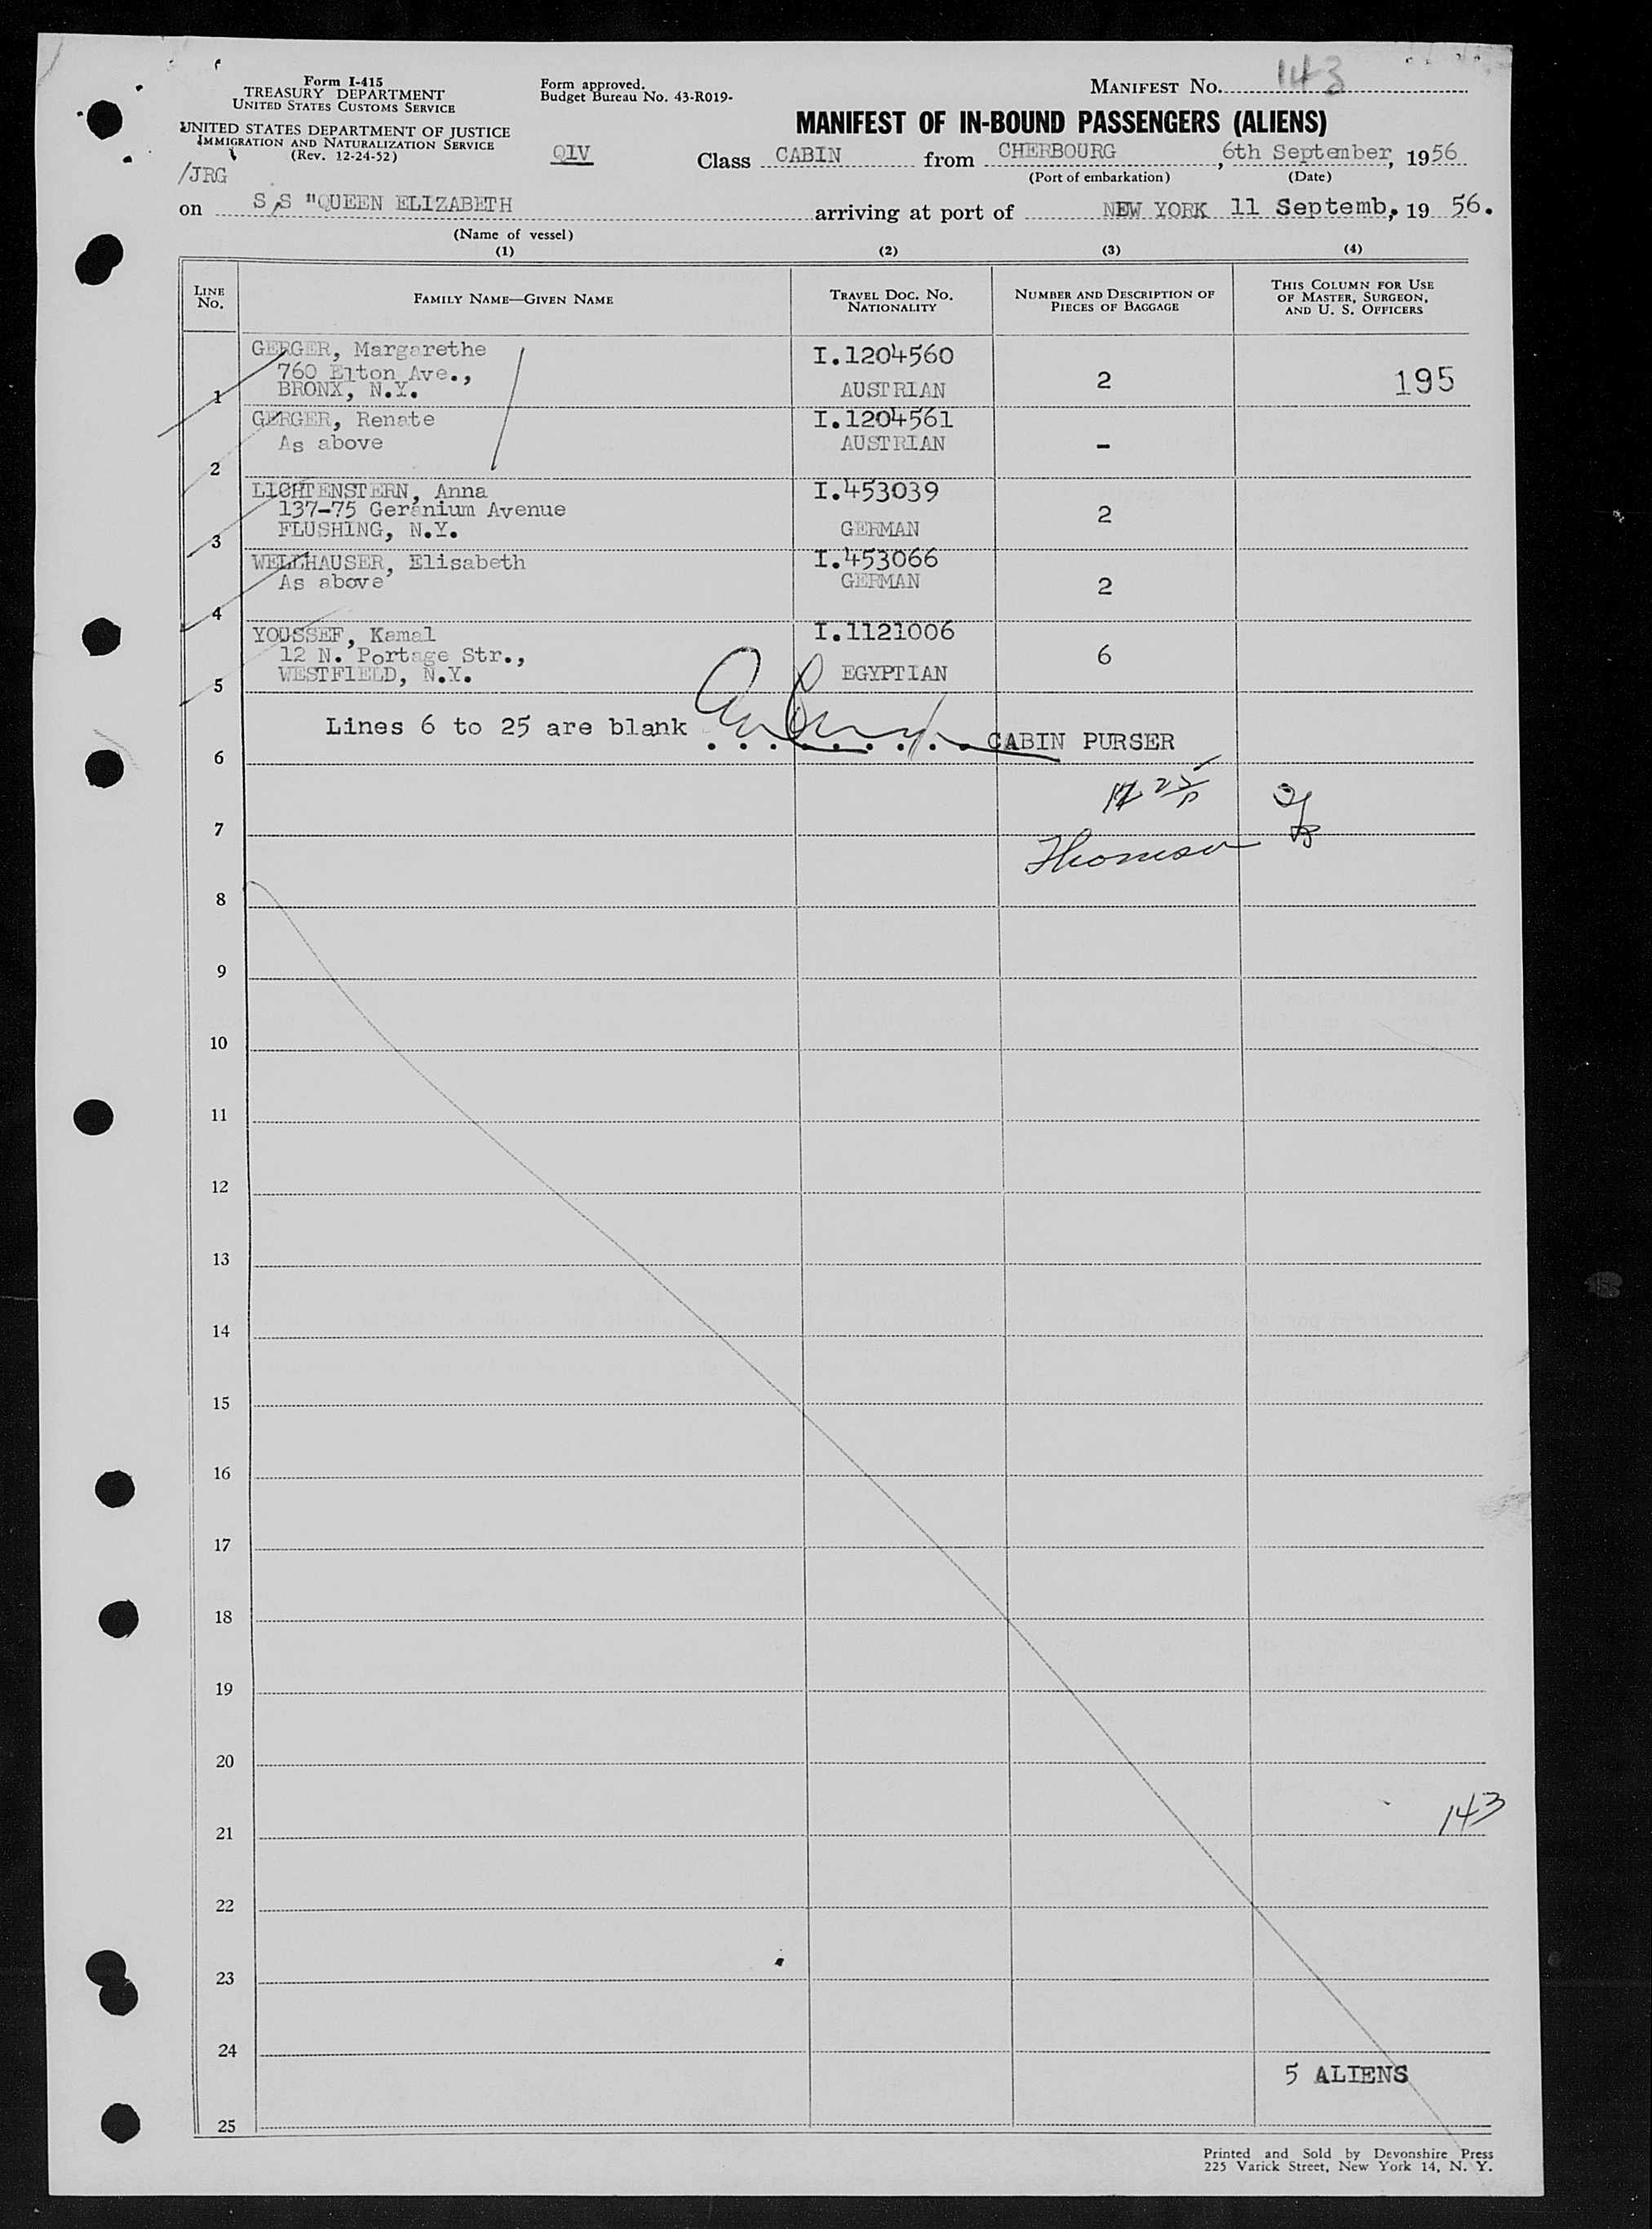 Form I-415
TREASURY DEPARTMENT
UNITED STATES CUSTOMS SERVICE
UNITED STATES DEPARTMENT OF JUSTICE
IMMIGRATION AND NATURALIZATION SERVICE
(Rev. 12-24-52)
/JRG
Form approved.
Budget Bureau No. 43-R019-
QIV
MANIFEST No. 143
MANIFEST OF IN-BOUND PASSENGERS (ALIENS)
Class CABIN from CHERBOURG, 6th September, 1956
(Port of embarkation) (Date)
on S,S "QUEEN ELIZABETH arriving at port of NEW YORK 11 Septemb, 19 56.
(Name of vessel)
(1) (2) (3) (4)
LINE No. FAMILY NAME—GIVEN NAME TRAVEL DOC. No. NATIONALITY NUMBER AND DESCRIPTION OF PIECES OF BAGGAGE THIS COLUMN FOR USE OF MASTER, SURGEON, AND U. S. OFFICERS
GERGER, Margarethe I.1204560
760 Elton Ave.,
1 BRONX, N.Y. AUSTRIAN 2 195
GERGER, Renate I.1204561
As above AUSTRIAN -
2
LICHTENSTERN, Anna I.453039
137-75 Geranium Avenue 2
3 FLUSHING, N.Y. GERMAN
WELLHAUSER, Elisabeth I.453066
As above GERMAN 2
4
YOUSSEF, Kamal I.1121006
12 N. Portage Str., 6
5 WESTFIELD, N.Y. EGYPTIAN
Lines 6 to 25 are blank . . . . . . . . CABIN PURSER
6
7
Thomson
8
9
10
11
12
13
14
15
16
17
18
19
20
143
21
22
23
24
5 ALIENS
25
Printed and Sold by Devonshire Press
225 Varick Street, New York 14, N. Y.